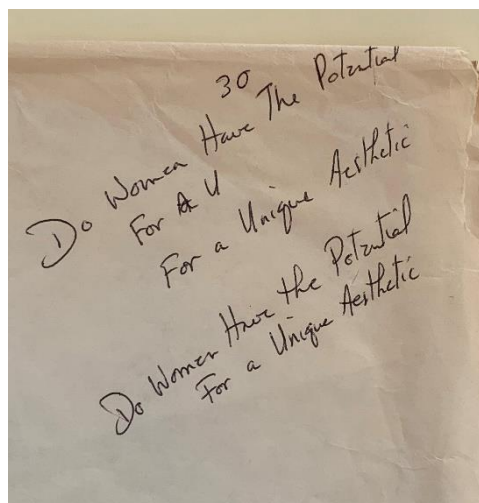 30
Do Women Have The Potential
For A U
For a Unique Aesthetic
Do Women Have the Potential
For a Unique Aesthetic